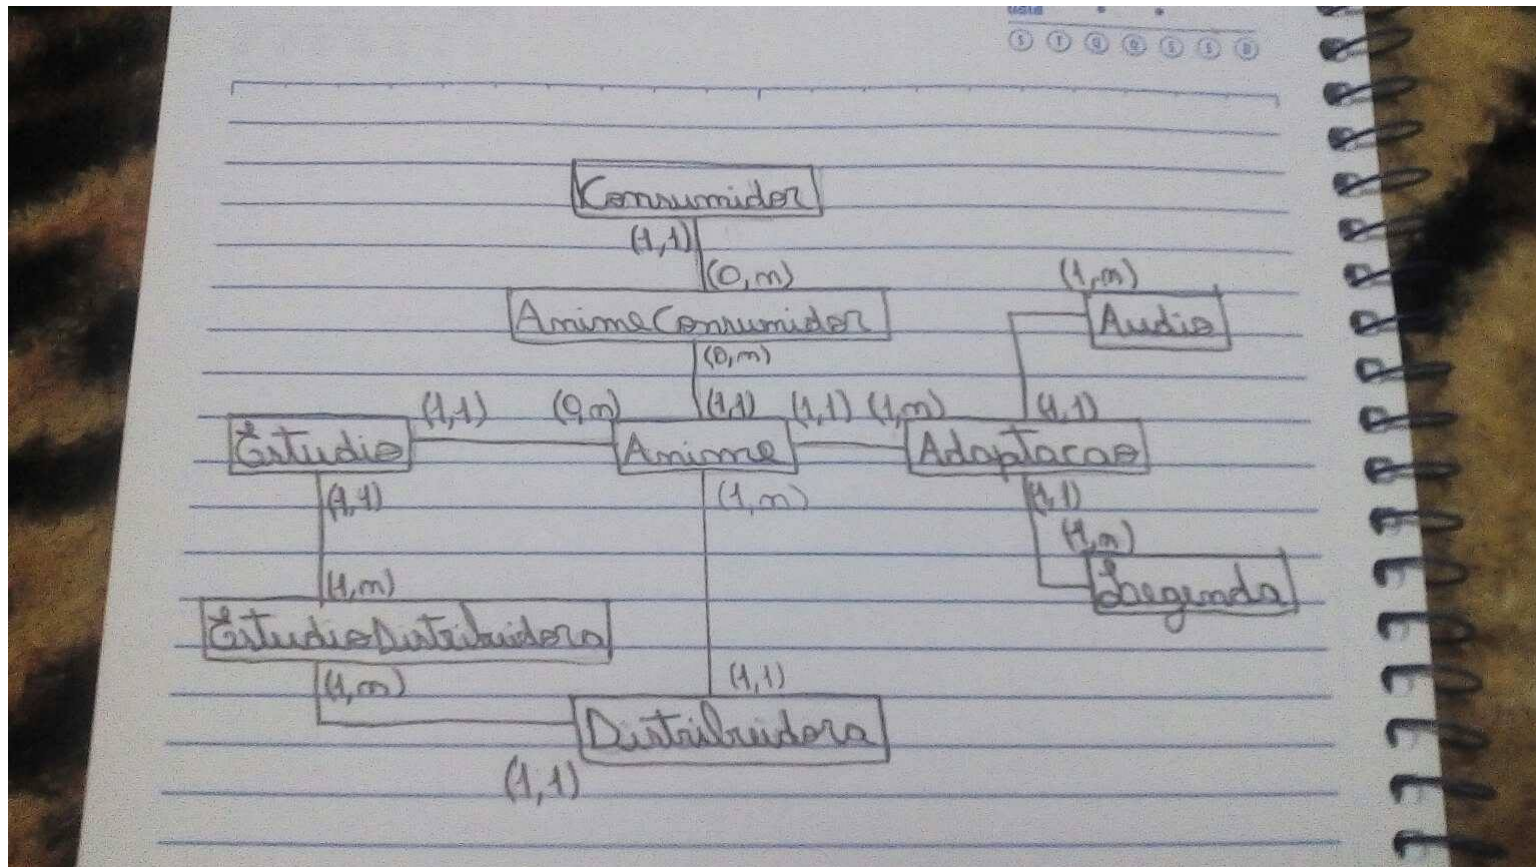 S T Q Q S S D
Consumidor
(1,1)
(0,n)
(1,n)
AnimeConsumidor
Audio
(0,n)
(1,1) (0,n) (1,1) (1,1) (1,n) (1,1)
Estudio Anime Adaptacao
(1,1) (1,n) (1,1)
(1,n)
(1,n) Legenda
EstudioDistribuidora
(1,n) (1,1)
Distribuidora
(1,1)